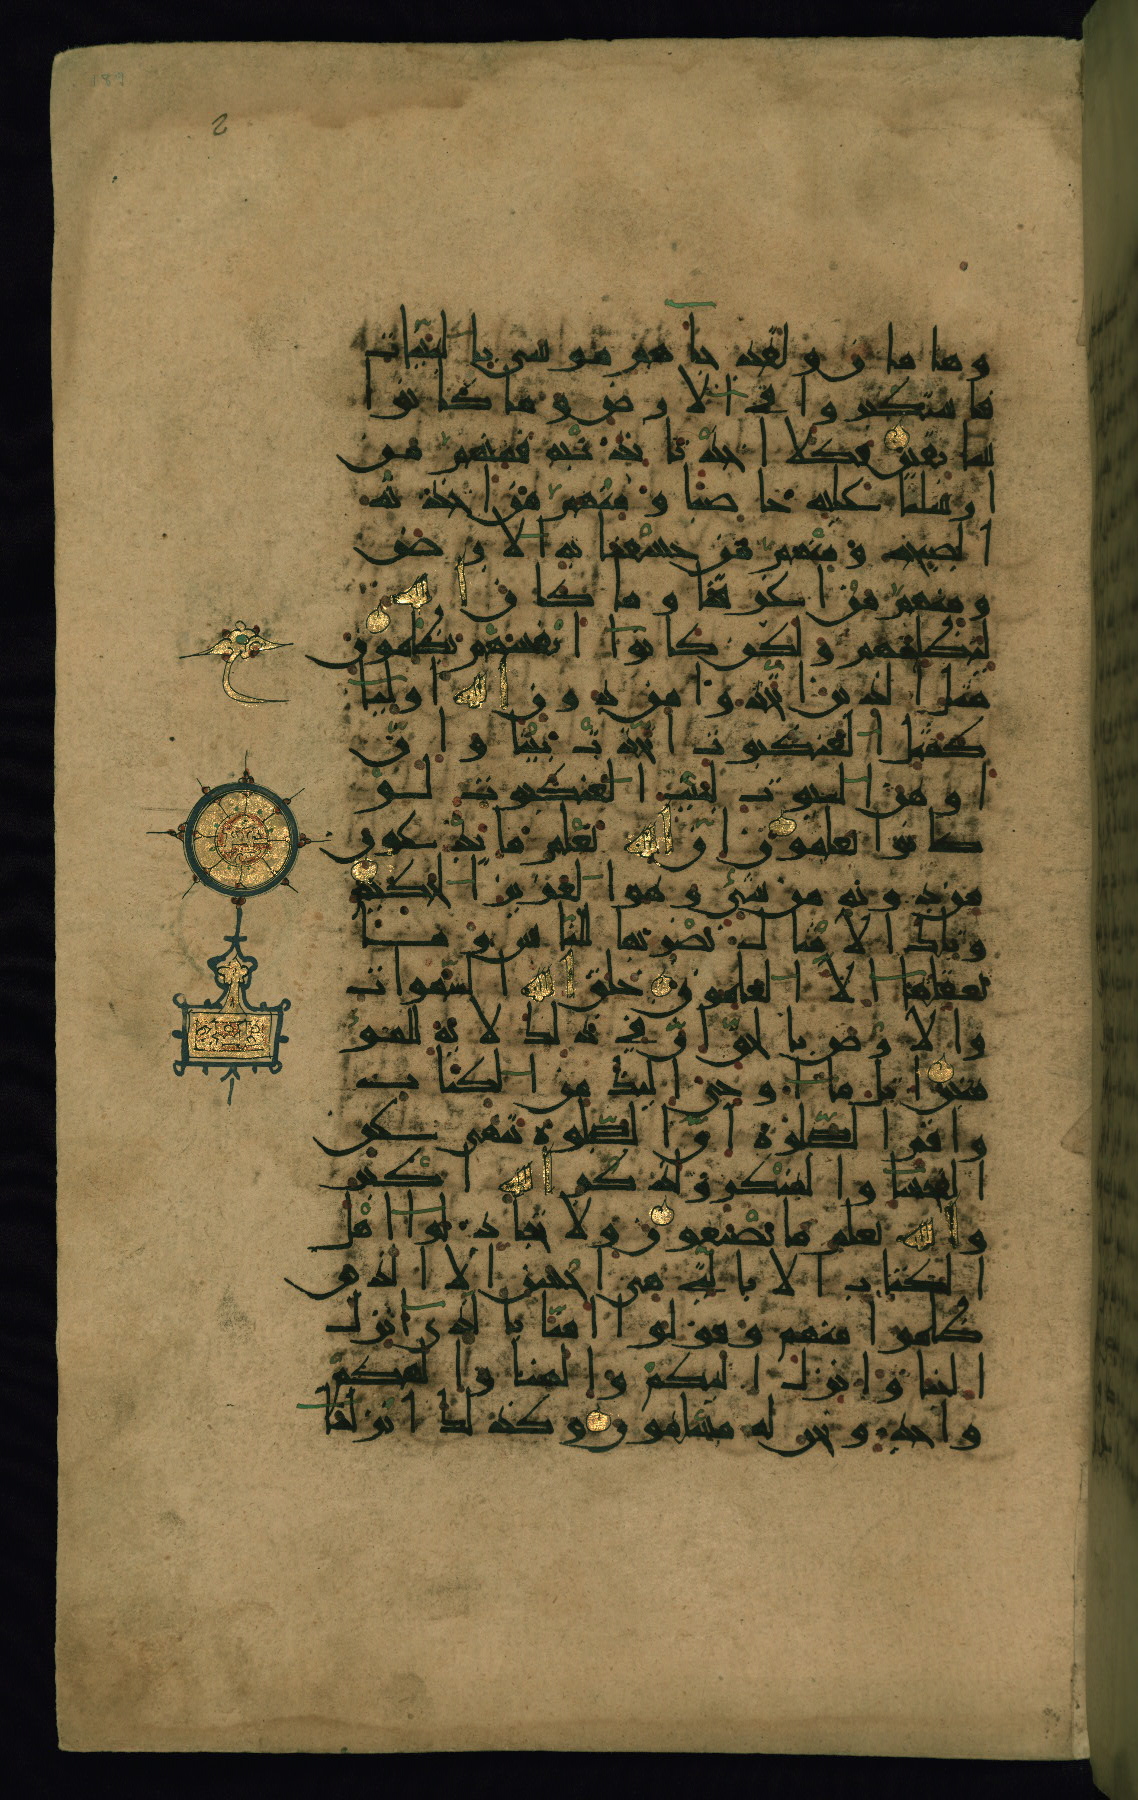 189
وهامان ولقد جاهم موسى بالبينات
فاستكبروا في الارض وما كانوا
سابقين فكلا اخذنا بذنبه فمنهم من
ارسلنا عليه حاصبا ومنهم من اخذته
الصيحة ومنهم من خسفنا به الارض
ومنهم من اغرقنا وما كان الله
ليظلمهم ولكن كانوا انفسهم يظلمون
مثل الذين اتخذوا من دون الله اوليا
كمثل العنكبوت اتخذت بيتا وان
اوهن البيوت لبيت العنكبوت لو
كانوا يعلمون ان الله يعلم ما يدعون
من دونه من شي وهو العزيز الحكيم
وتلك الامثال نضربها للناس وما
يعقلها الا العلمون خلق الله السموات
والارض بالحق ان في ذلك لاية للمو
منين اتل ما اوحي اليك من الكتاب
واقم الصلوة ان الصلوة تنهى عن
الفحشا والمنكر ولذكر الله اكبر
والله يعلم ما تصنعون ولا تجادلوا اهل
الكتاب الا بالتي هي احسن الا الذين
ظلموا منهم وقولوا امنا بالذي انزل
الينا وانزل اليكم والهنا والهكم
واحد ونحن له مسلمون وكذلك انزلنا